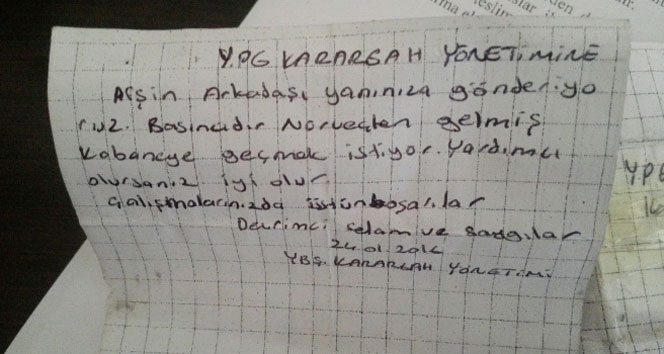 YPG KARARGAH YÖNETİMİNE
Afşin Arkadaşı yanınıza gönderiyo
ruz. Basıncıdır Norveçten gelmiş
Kobaneye geçmek istiyor. Yardımcı
olursanız iyi olur
Çalışmalarınızda üstün başarılar
Devrimci selam ve saygılar
24 01 201
YBŞ. KARARGAH YÖNETİMİ
YPG